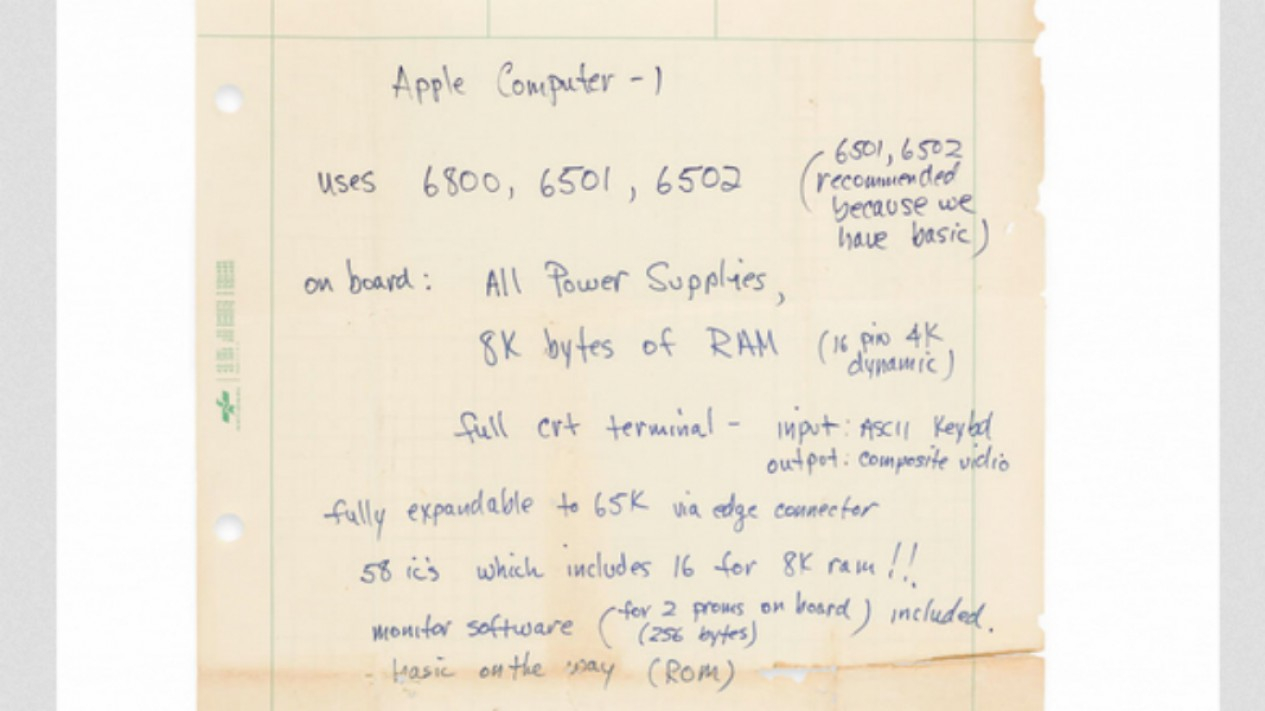 Apple Computer - 1
uses 6800, 6501, 6502 (6501, 6502
recommended
because we
have basic)
on board: All Power Supplies,
8K bytes of RAM (16 pin 4K
dynamic)
full crt terminal - input: ASCII Keybd
output: composite vidio
fully expandable to 65K via edge connector
58 ic's which includes 16 for 8K ram!!
monitor software (for 2 proms on board) included.
(256 bytes)
- basic on the way (ROM)